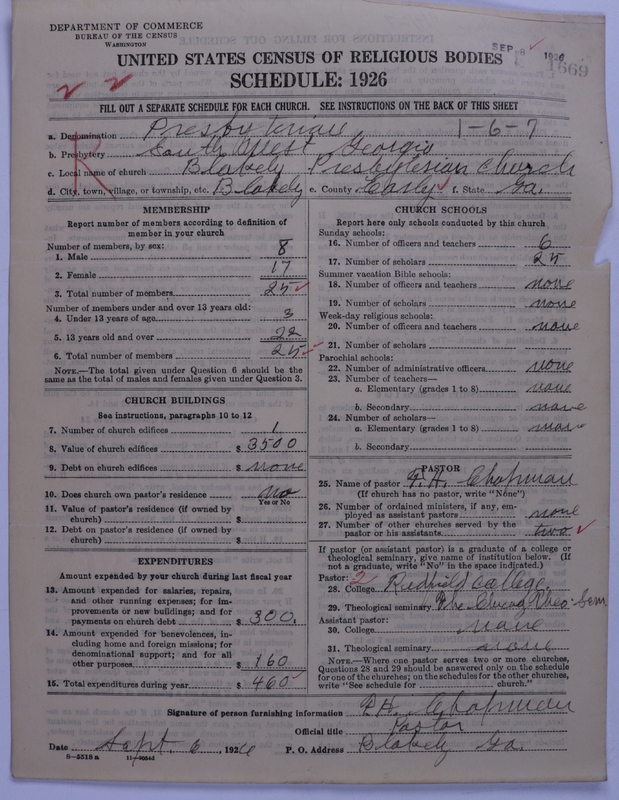 DEPARTMENT OF COMMERCE
BUREAU OF THE CENSUS
WASHINGTON
SEP 8 1926
1669
UNITED STATES CENSUS OF RELIGIOUS BODIES
SCHEDULE: 1926
2 2
FILL OUT A SEPARATE SCHEDULE FOR EACH CHURCH. SEE INSTRUCTIONS ON THE BACK OF THIS SHEET
R
a. Denomination Presbyterian 1-6-7
b. Presbytery South West Georgia
c. Local name of church Blakely Presbyterian Church
d. City, town, village, or township, etc. Blakely e. County Early f. State Ga.
MEMBERSHIP
Report number of members according to definition of
member in your church
Number of members, by sex:
1. Male 8
2. Female 17
3. Total number of members 25
Number of members under and over 13 years old:
4. Under 13 years of age 3
5. 13 years old and over 22
6. Total number of members 25
NOTE.—The total given under Question 6 should be
same as the total of males and females given under Question 3.
CHURCH BUILDINGS
See instructions, paragraphs 10 to 12
7. Number of church edifices 1
8. Value of church edifices $ 3500
9. Debt on church edifices $ none
10. Does church own pastor's residence no
Yes or No
11. Value of pastor's residence (if owned by
church) $
12. Debt on pastor's residence (if owned by
church) $
EXPENDITURES
Amount expended by your church during last fiscal year
13. Amount expended for salaries, repairs,
and other running expenses; for im-
provements or new buildings; and for
payments on church debt $ 300.
14. Amount expended for benevolences, in-
cluding home and foreign missions; for
denominational support; and for all
other purposes $ 160
15. Total expenditures during year $ 460
CHURCH SCHOOLS
Report here only schools conducted by this church
Sunday schools:
16. Number of officers and teachers 6
17. Number of scholars 25
Summer vacation Bible schools:
18. Number of officers and teachers none
19. Number of scholars none
Week-day religious schools:
20. Number of officers and teachers none
21. Number of scholars
Parochial schools:
22. Number of administrative officers none
23. Number of teachers—
a. Elementary (grades 1 to 8) none
b. Secondary none
24. Number of scholars—
a. Elementary (grades 1 to 8) none
b. Secondary
PASTOR
25. Name of pastor F. H. Chapman
(If church has no pastor, write "None")
26. Number of ordained ministers, if any, em-
ployed as assistant pastors none
27. Number of other churches served by the
pastor or his assistants two
If pastor (or assistant pastor) is a graduate of a college or
theological seminary, give name of institution below. (If
not a graduate, write "No" in the space indicated.)
Pastor: 2
28. College Redfield College
29. Theological seminary The Theo. Sem
Assistant pastor:
30. College none
31. Theological seminary none
NOTE.—Where one pastor serves two or more churches,
Questions 28 and 29 should be answered only on the schedule
for one of the churches; on the schedules for the other churches,
write "See schedule for church."
Signature of person furnishing information F. H. Chapman
Official title Pastor
Date Sept. 6, 1926 P. O. Address Blakely Ga.
8-2518a